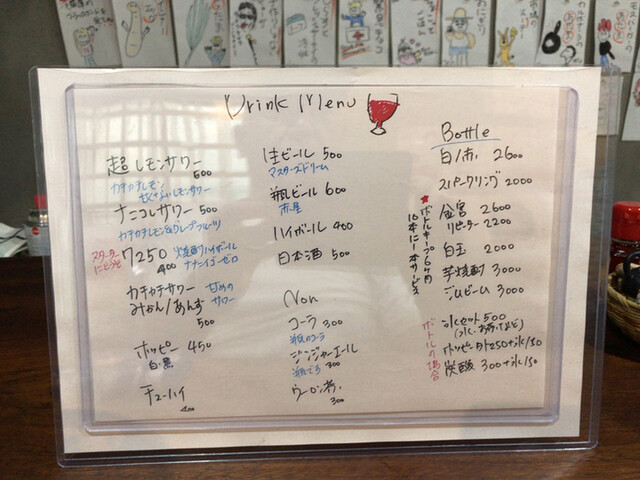 Drink Menu
超レモンサワー
500
カチカチレモン
ナニコレサワー 500
カチカチレモン&グレープフルーツ
スターターにどうぞ
7250 焼酎ハイボール
400
カチカチサワー 甘めの
みかん/あんず サワー
500
ホッピー 450
白黒
チューハイ
400
生ビール 500
マスターズドリーム
瓶ビール 600
赤星
ハイボール 400
日本酒 500
Non
コーラ 300
瓶のコーラ
ジンジャーエール
300
ウーロン茶
300
Bottle
白/赤 2600
スパークリング 2000
金宮 2600
リピーター 2200
白玉 2000
芋焼酎 3000
ジムビーム 3000
★ボトルキープ6ヶ月
ボトルの場合
氷セット 500
ホッピー外250+氷150
炭酸 300+氷150